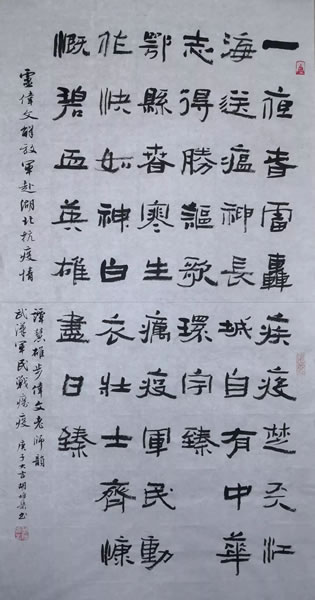 一夜春雷轟疾疫楚天江
海送瘟神長城自有中華
志得勝謳歌環宇臻
鄂縣春寒生癘疫軍民動
作快如神白衣壯士齊慷
慨碧血英雄盡日臻
偉文解放軍赴湖北抗疫情
譚雄步偉文老師韻
武漢軍民戰瘟疫 庚子大吉胡書